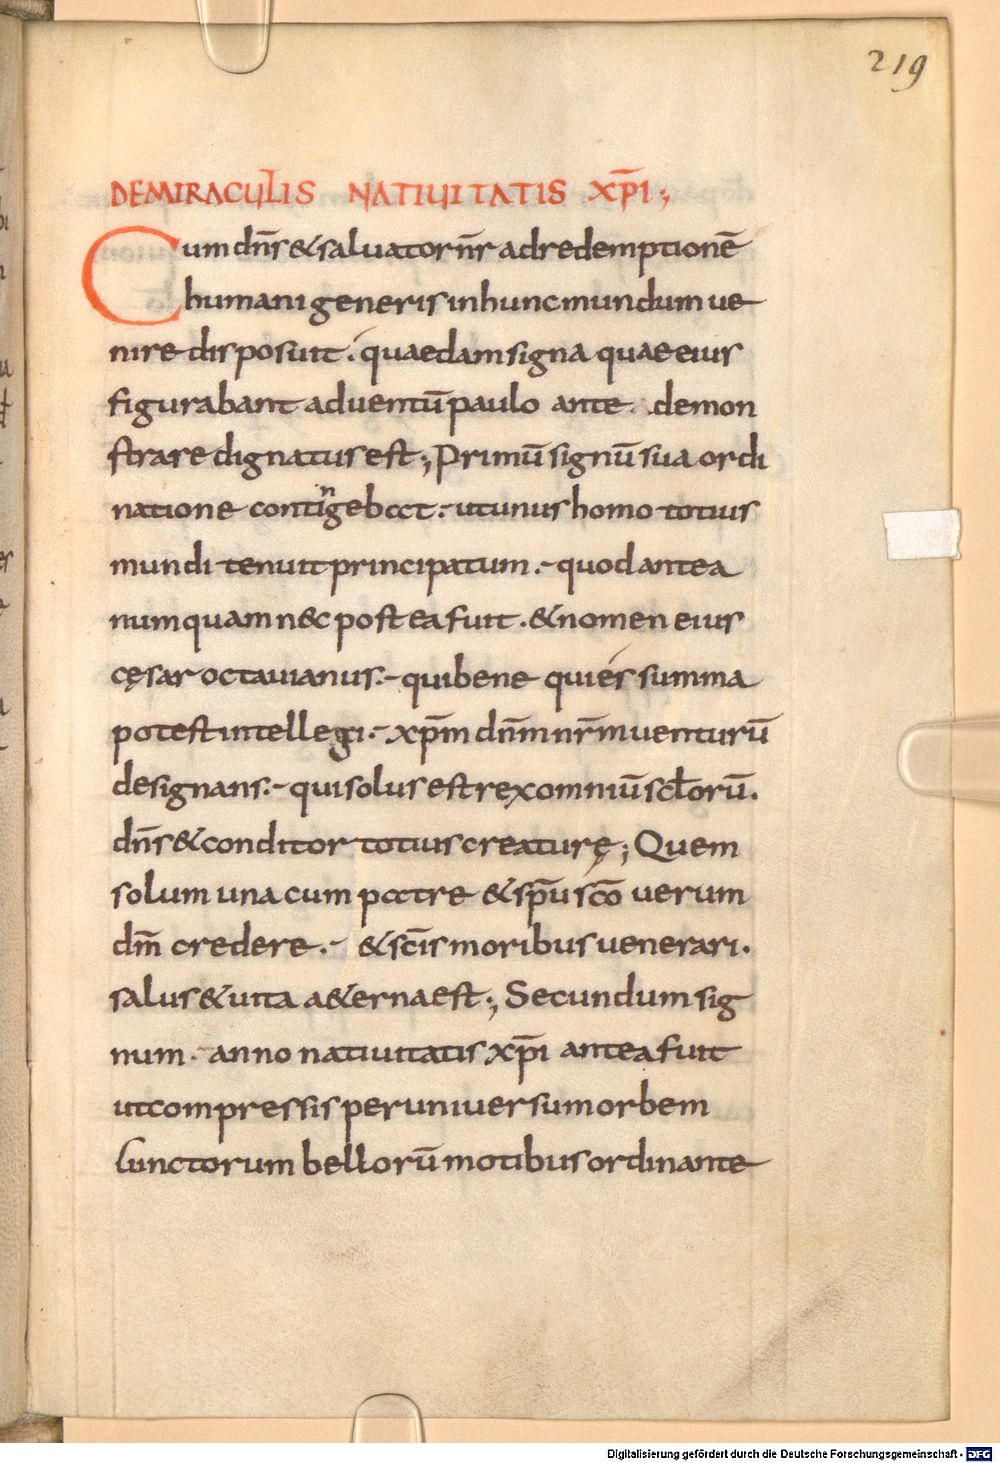 219
DE MIRACULIS NATIUITATIS XP̄I;
Cum dn̄s & saluator nr̄ ad redemptionē
humani generis in hunc mundum ue
nire disposuit. quaedam signa quae eius
figurabant aduentū paulo ante demon
strare dignatus est; Primū signū sua ordi
natione contingebat. ut unus homo totius
mundi tenuit principatum. quod antea
numquam nec postea fuit. & nomen eius
cęsar octauianus. qui bene quies summa
potest intellegi. xp̄m dn̄m nr̄m uenturū
designans. qui solus est rex omniū scl̄orū.
dn̄s & conditor totius creaturę; Quem
solum una cum patre & sp̄u sc̄o uerum
dm̄ credere. & sc̄is moribus uenerari.
salus & uita a&erna est; Secundum sig
num. anno natiuitatis xp̄i antea fuit
ut compressis per uniuersum orbem
cunctorum bellorū motibus ordinante
Digitalisierung gefördert durch die Deutsche Forschungsgemeinschaft - DFG